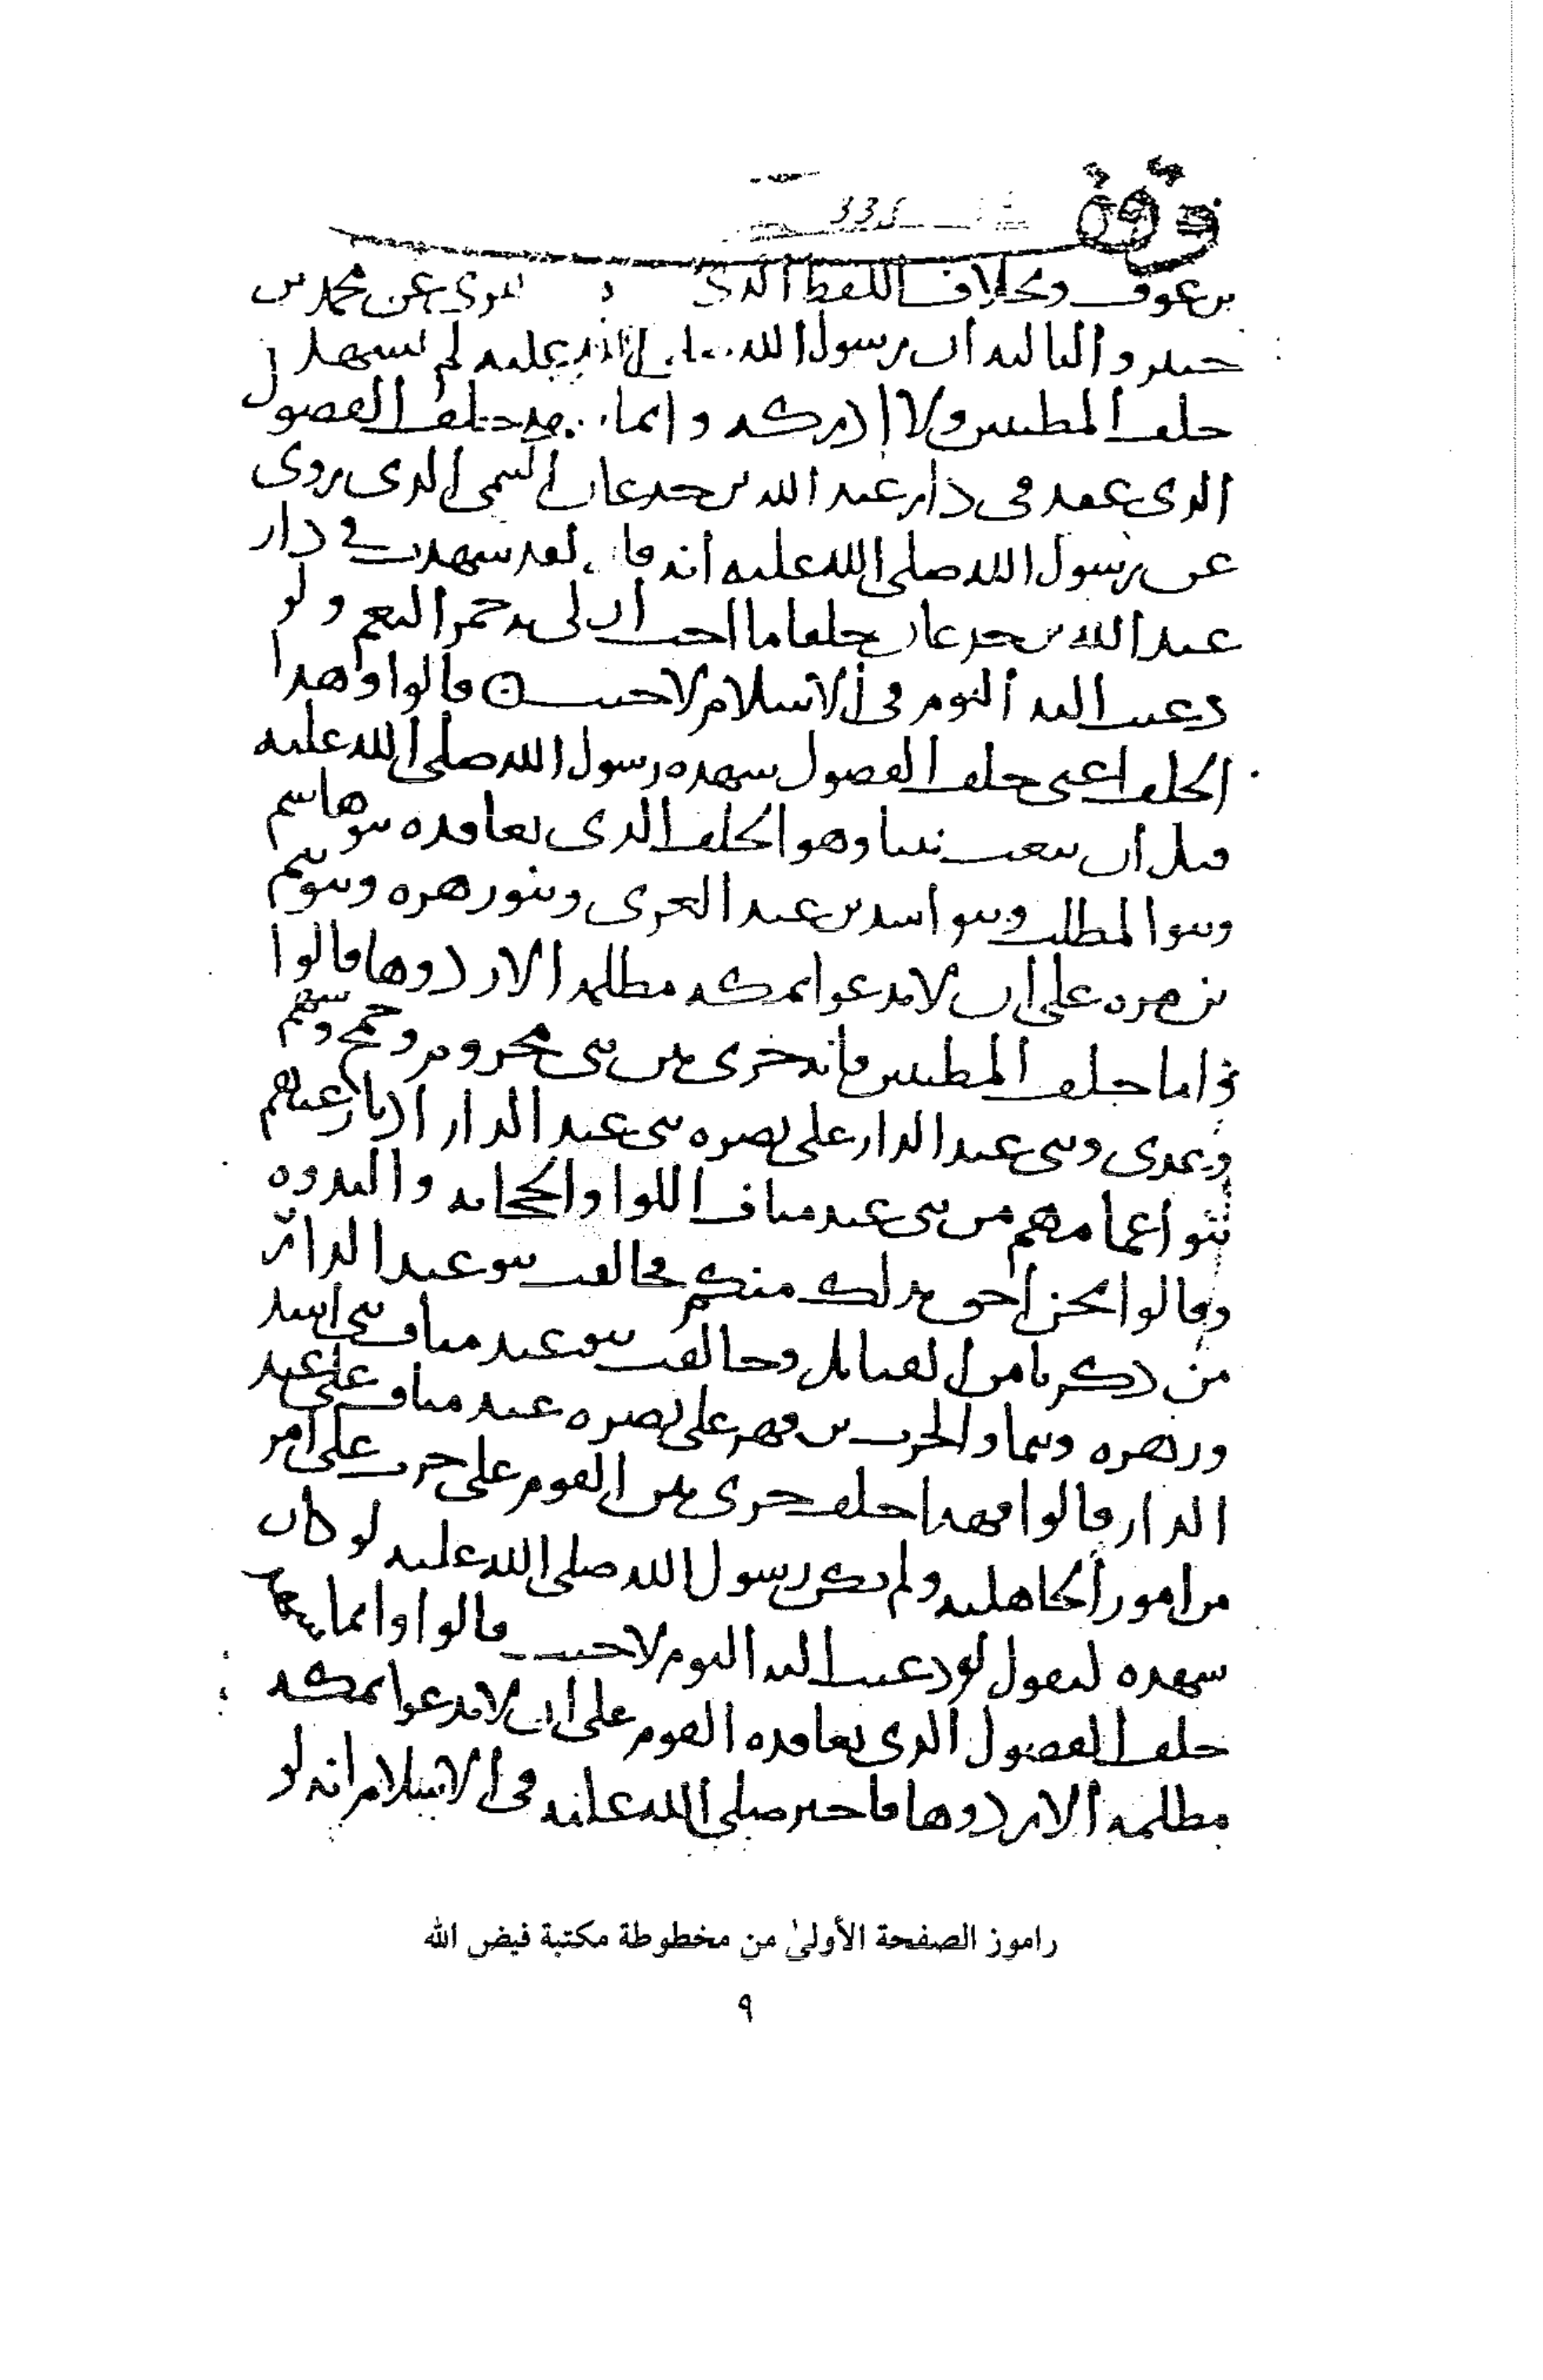 وقف
331
بن عوف وبخلاف اللفظ الذي روي عن محمد بن
جبير والثالثة ان رسول الله صلى الله عليه لم يشهد
حلف المطيبين ولا ادركه وانما شهد حلف الفضول
الذي عقد في دار عبد الله بن جدعان التيمي الذي روي
عن رسول الله صلى الله عليه انه قال لقد شهدت في دار
عبد الله بن جدعان حلفا ما احب ان لي به حمر النعم ولو
دعيت اليه اليوم في الاسلام لاجبت ه قالوا وهذا
الحلف اعني حلف الفضول شهده رسول الله صلى الله عليه
قبل ان يبعث نبيا وهو الحلف الذي تعاقده بنو هاشم
وبنو المطلب وبنو اسد بن عبد العزى وبنو زهرة وبنو تيم
بن مرة على ان لا يدعوا بمكة مظلمة الا ردوها قالوا
واما حلف المطيبين فانه جرى بين بني مخزوم وجمح وسهم
وعدي وبني عبد الدار على نصرة بني عبد الدار اذ نازعهم
بنو اعمامهم من بني عبد مناف اللوا والحجابة والندوة
وقالوا نحن احق بذلك منكم فحالفت بنو عبد الدار
من ذكرنا من القبائل وحالفت بنو عبد مناف بني اسد
وزهرة وتيما والحرث بن فهر على نصرة عبد مناف على عبد
الدار قالوا فهذا حلف جرى بين القوم على حرب على امر
من امور الجاهلية ولم يكن رسول الله صلى الله عليه لو كان
شهده ليقول لو دعيت اليه اليوم لاجبت قالوا وانما
حلف الفضول الذي تعاقده القوم على ان لا يدعوا بمكة
مظلمة الا ردوها فاخبر صلى الله عليه في الاسلام انه لو
راموز الصفحة الأولىٰ من مخطوطة مكتبة فيض الله
٩